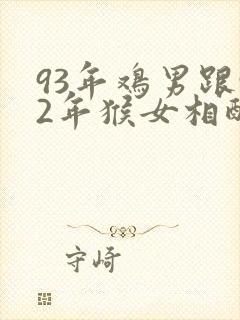 93年鸡男跟
2年猴女相配
守崎